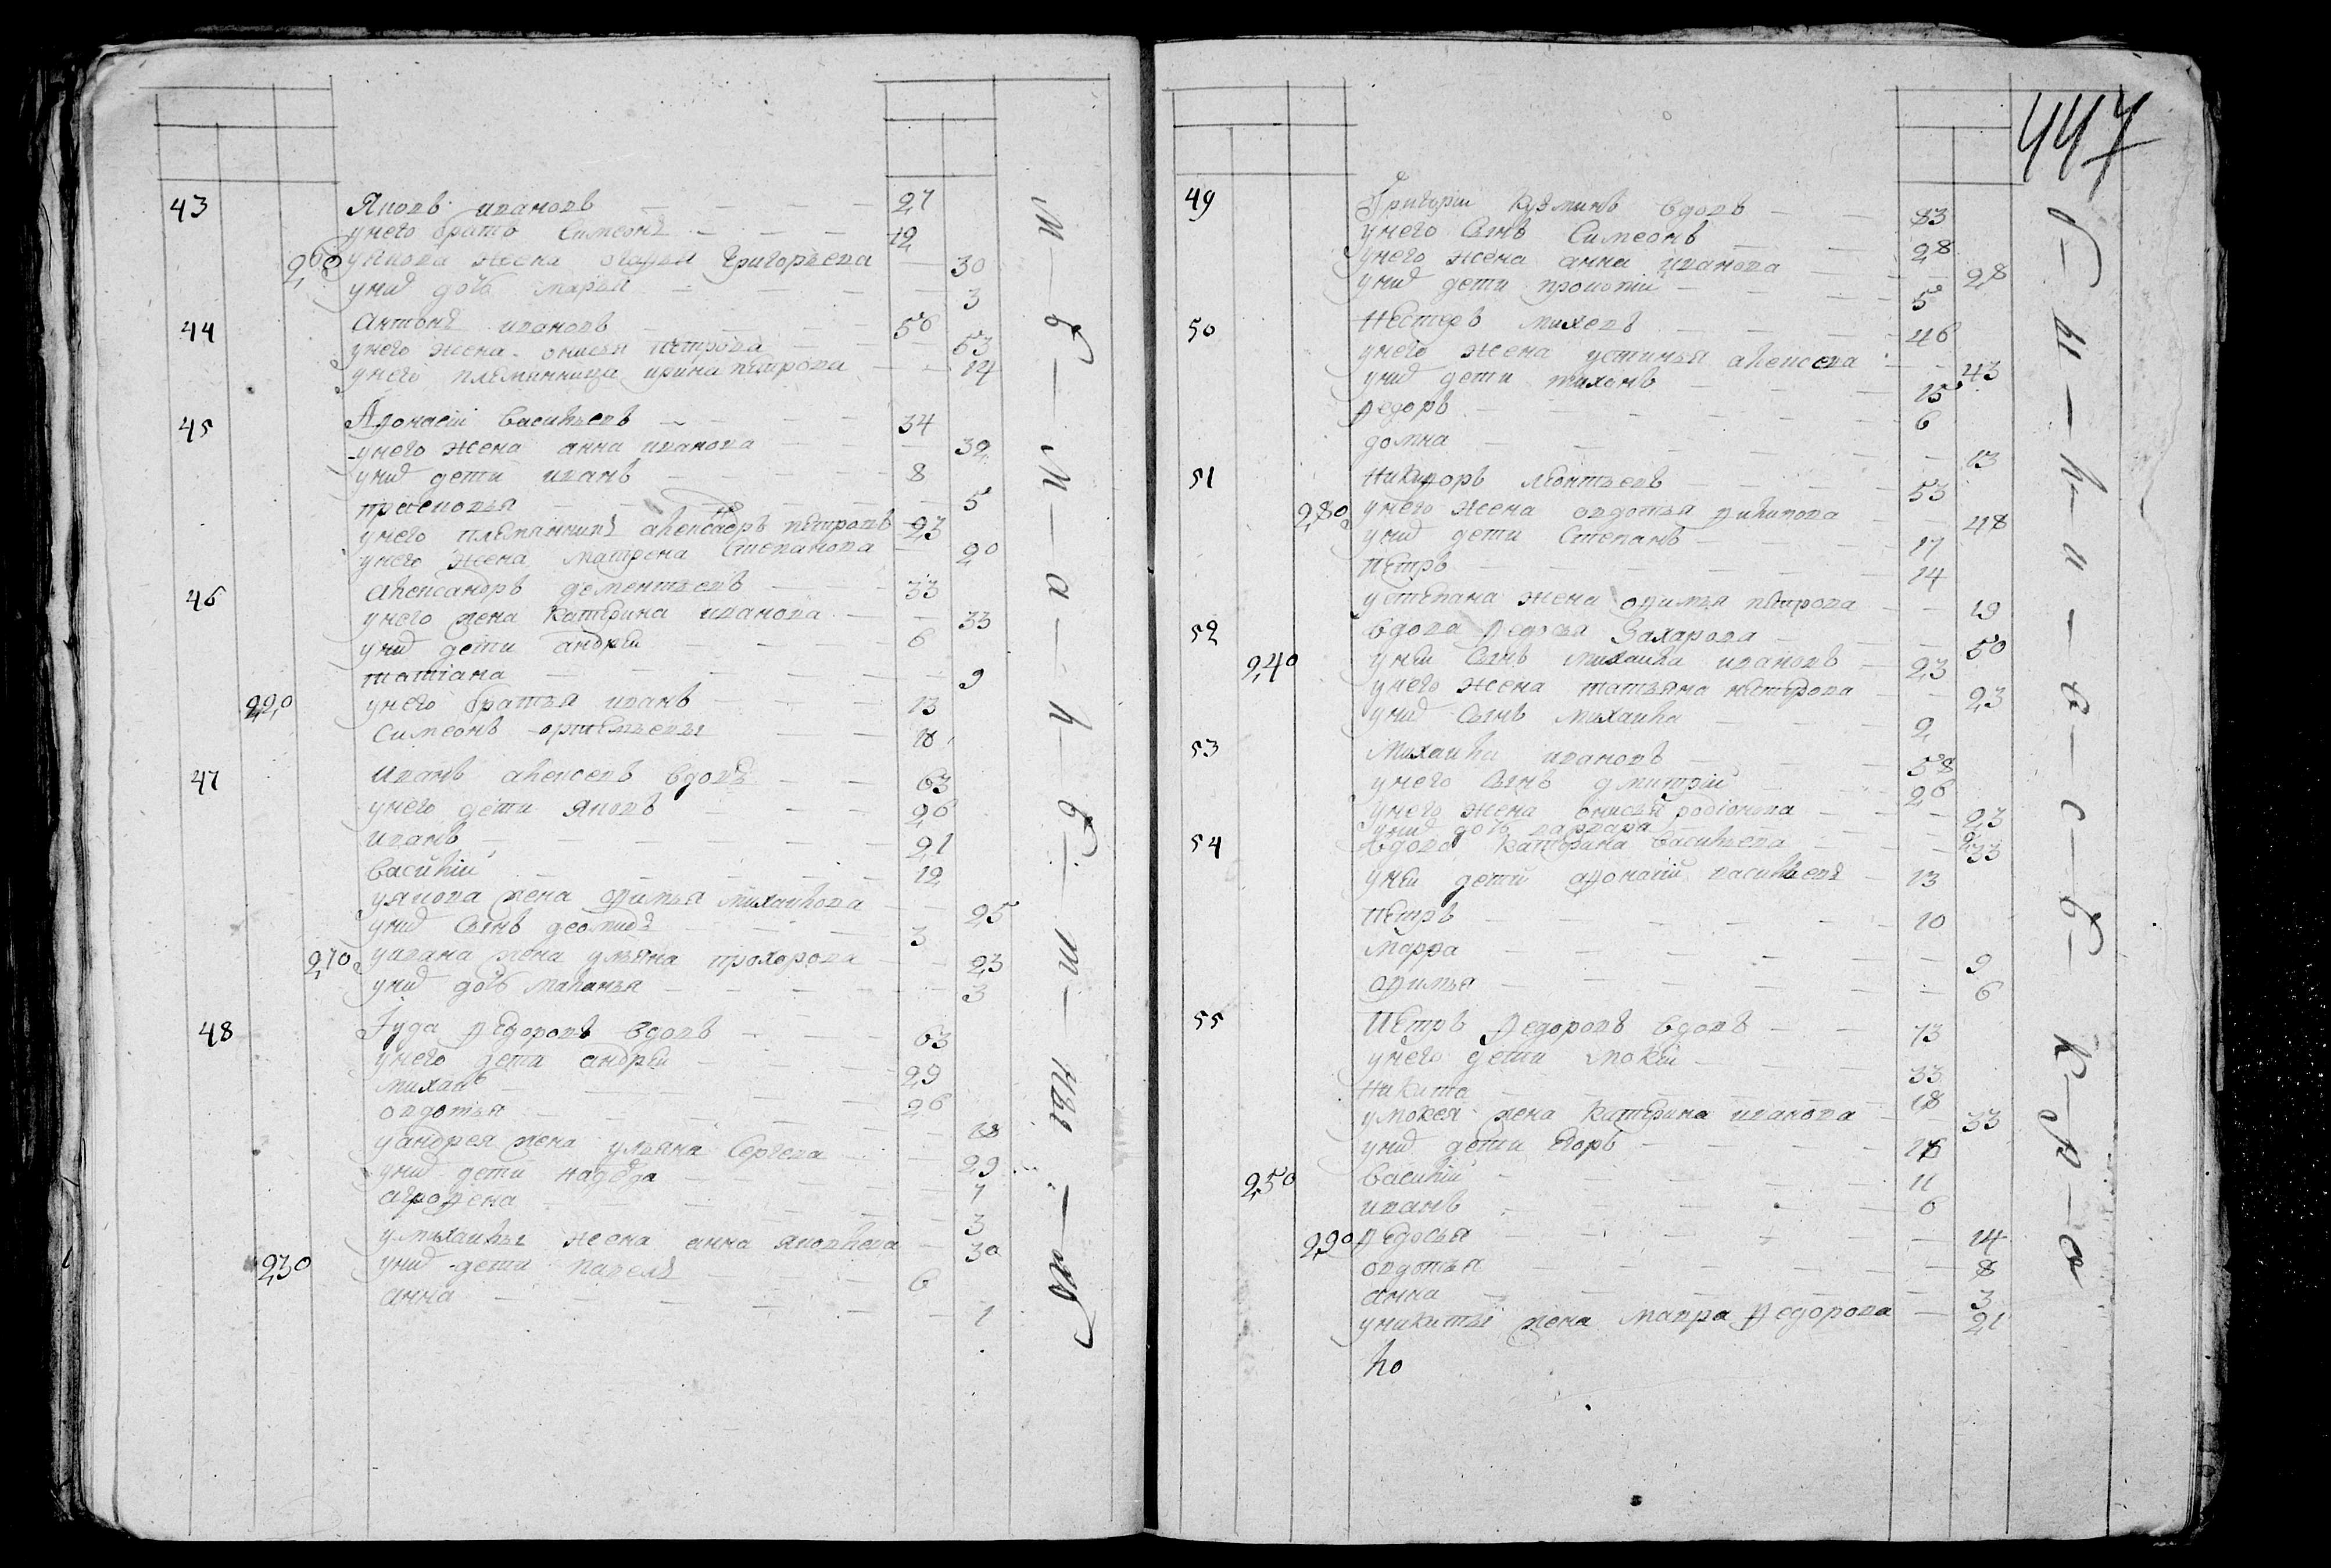 43 Яковъ ивановъ 27
у него братъ Симеонъ 12
260 у якова жена Григорьева 30
у них дочь марья 3
44 Антонъ ивановъ 56
у него жена онисья петрова 53
у него племянница ирина петрова 14
45 Афонасей Васильевъ 34
у него жена анна иванова 32
у них дети иванъ 8
прасковья 5
у него племянникъ александръ петровъ 23
у него жена матрена Степанова 20
46 александръ дементьевъ 33
у него жена катерина иванова 33
у них дети андрей 6
татиана 9
220 у него братья иванъ 13
Симеонъ 10
47 иванъ алексеевъ вдовъ 63
у него дети яковъ 26
иванъ 21
василий 12
у якова жена офимья михайлова 25
у них сынъ деомидъ 3
270 у ивана жена ульяна прохорова 23
у них дочь маланья 3
48 Iуда федоровъ вдовъ 63
у него дети андрей 29
михаилъ 26
овдотья 18
у андрея жена ульяна Сергеева 29
у них дети надежда 7
аграфена 3
у михаилы жена анна яковлева 30
230 у них дети павелъ 6
анна 1
447
49 Григорiй кузминъ вдовъ 83
у него сынъ Симеонъ 28
у него жена анна иванова 28
у них дети прокопiй 5
50 Нестеръ михеевъ 46
у него жена устинья алексеева 43
у них дети тихонъ 15
федоръ 6
домна 13
51 Никифоръ леонтьевъ 53
280 у него жена овдотья филипова 48
у них дети Степанъ 17
петръ 14
у степана жена офимья петрова 19
52 вдова федосья Захарова 50
240 у ней сынъ михаила ивановъ 23
у него жена татьяна петрова 23
у них сынъ михаила 2
53 Михаила ивановъ 58
у него сынъ дмитрiй 26
у него жена онисья родiонова 23
у них дочь варвара 2
54 вдова катерина васильева 33
у ней дети афонасiй васильевъ 13
петръ 10
марфа 9
офимья 6
55 Петръ федоровъ вдовъ 73
у него дети мокей 33
никита 18
у мокея жена катерина иванова 33
у них дети егоръ 16
250 василiй 11
иванъ 6
290 федосья 14
овдотья 8
анна 3
у никиты жена мавра федорова 21
ло